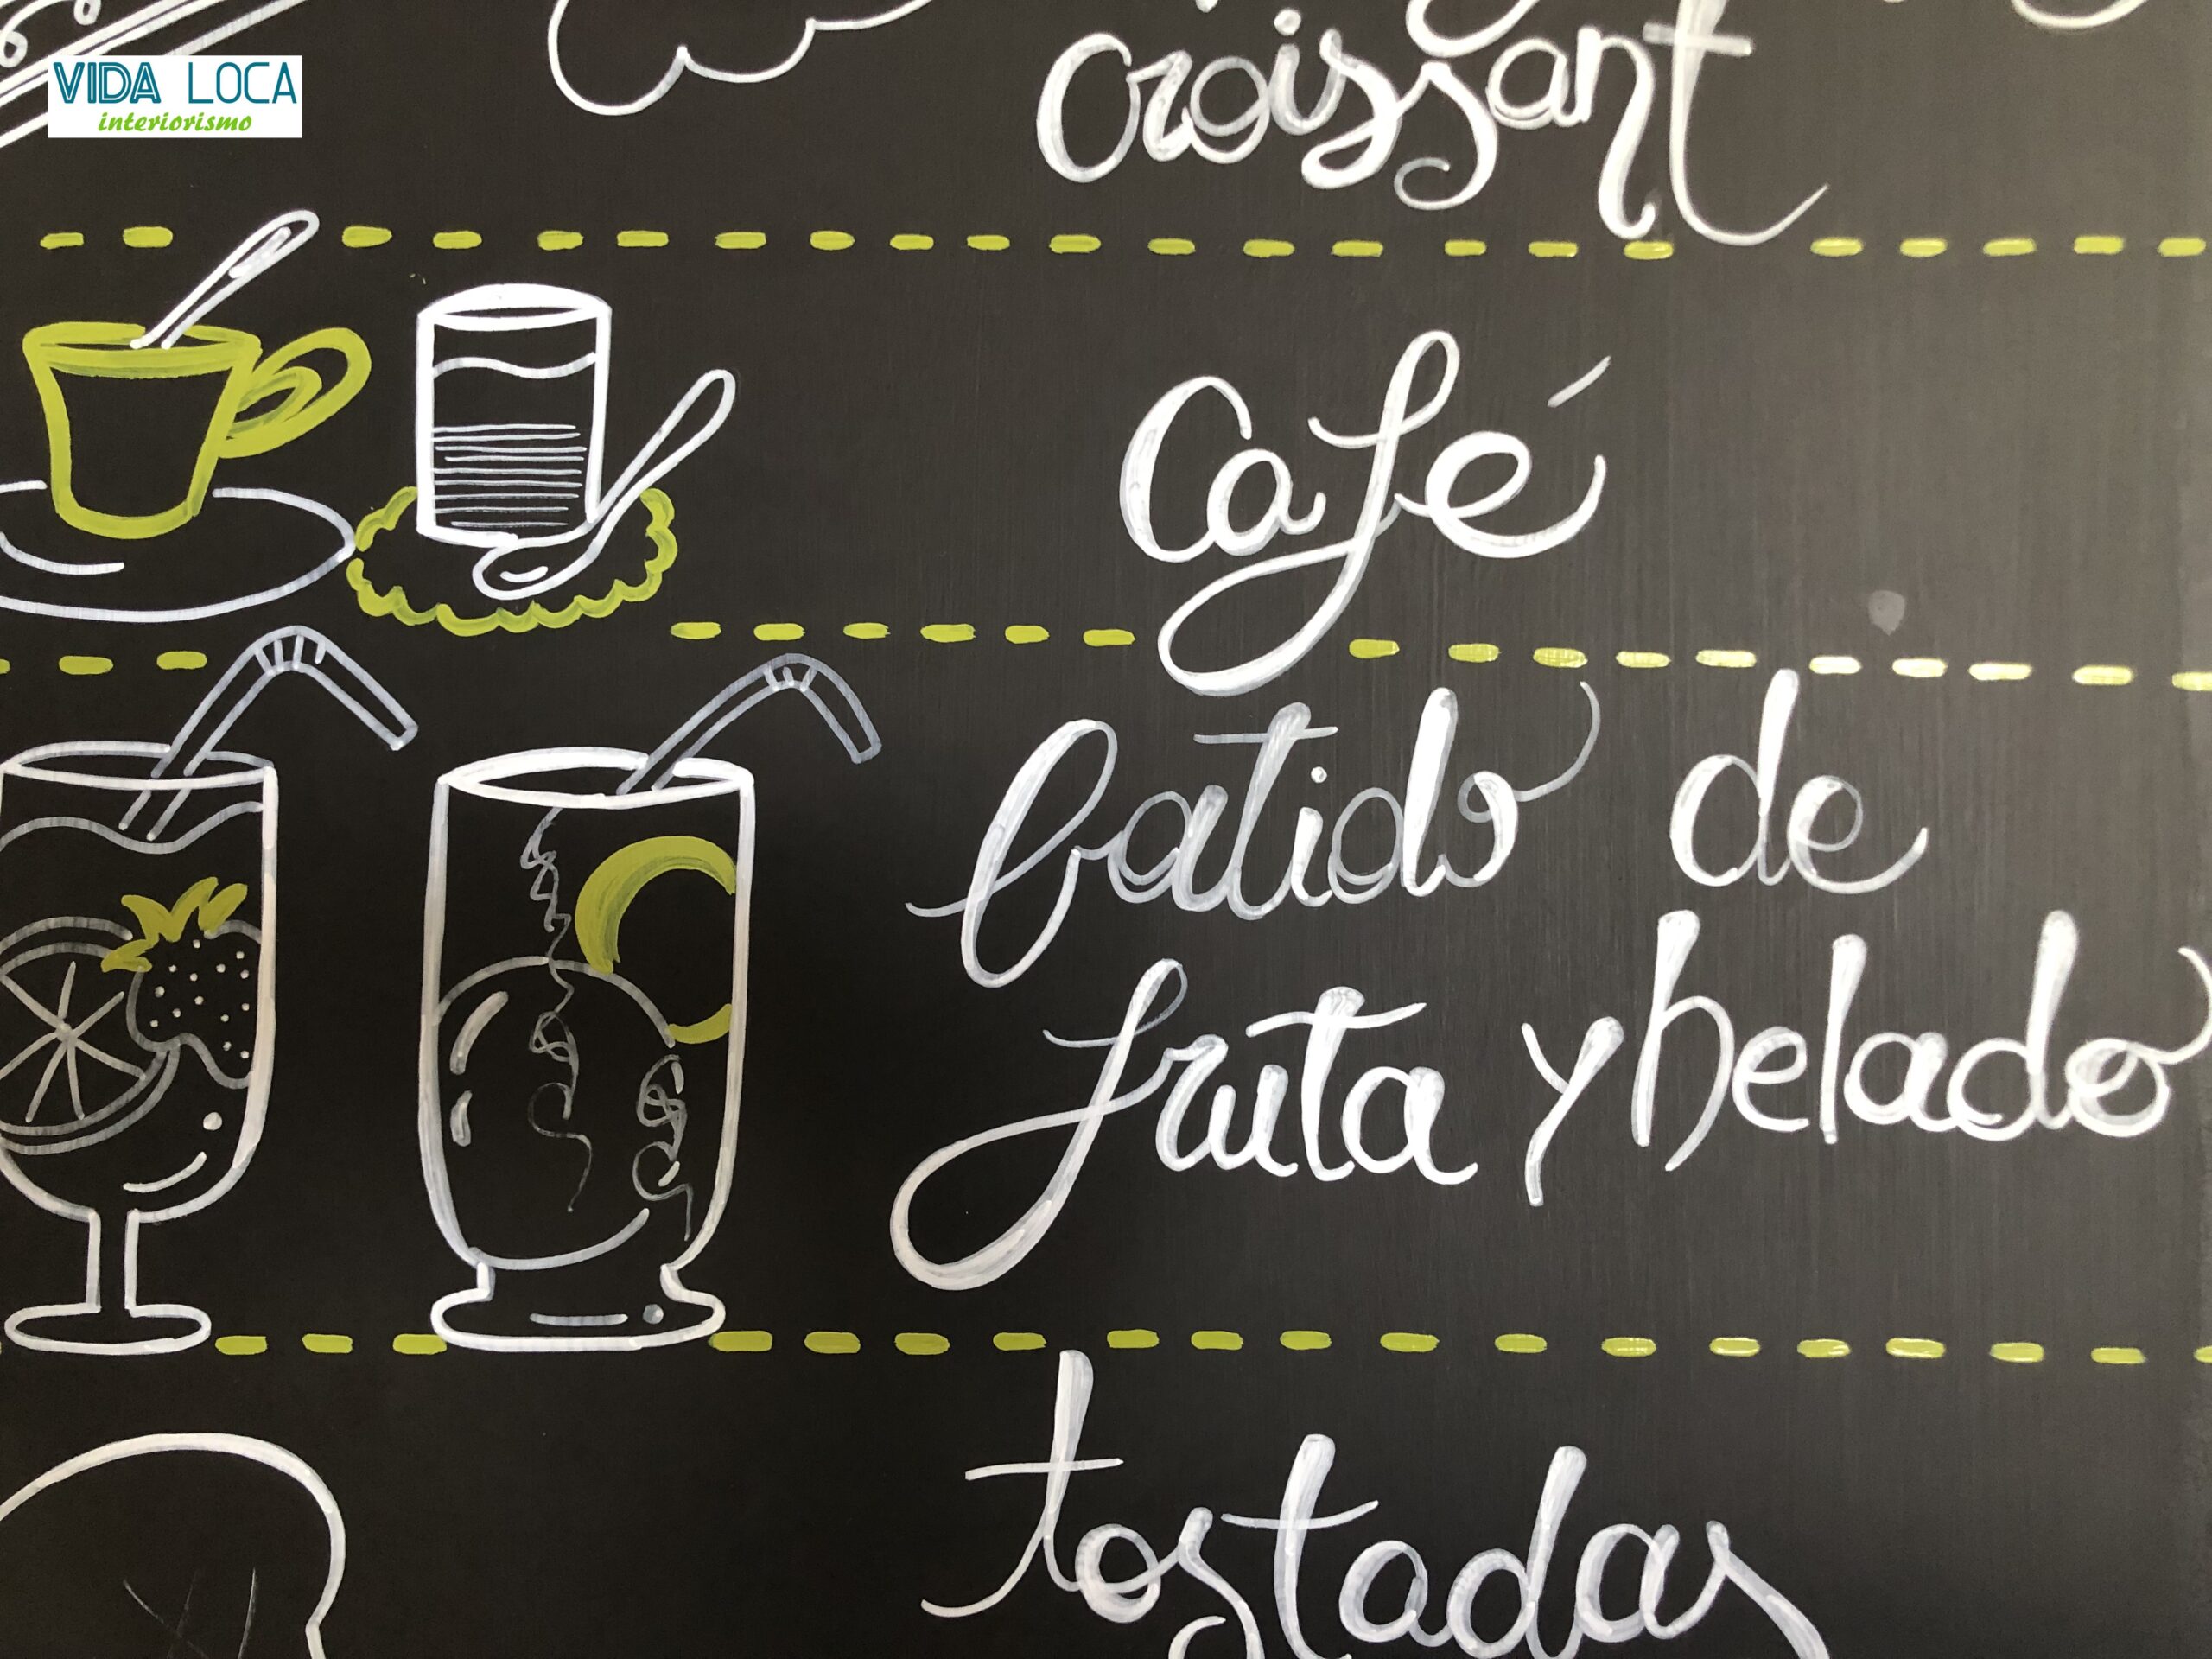 VIDA LOCA
interiorismo
croissant
Café
batido de
fruta y helado
tostadas